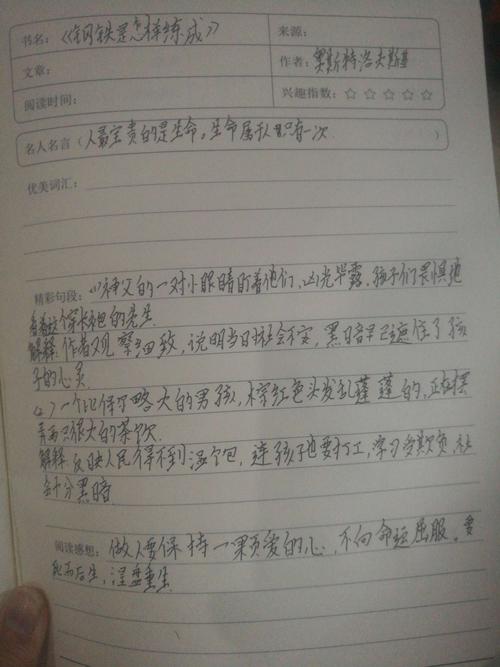 书名：《钢铁是怎样练成》
来源：
文章：
作者：奥斯特洛夫斯基
阅读时间：
兴趣指数：☆☆☆☆☆
名人名言（人最宝贵的是生命。生命属于人只有一次）
优美词汇：
精彩句段：(1)神父的一对小眼睛盯着他们，凶光毕露，孩子们畏惧地
看着这个穿长袍的先生
解释：作者观察细致，说明当日社会不安，黑暗早已遮住了孩
子的心灵
(2)一个比保尔略大的男孩，棕红色头发乱蓬蓬的，正在摆
弄两只很大的茶饮
解释：反映人民得不到温饱，连孩子也要打工，
会十分黑暗
阅读感想：做人要保持一颗爱的心，不向命运屈服。要
死而后生，涅盘重生